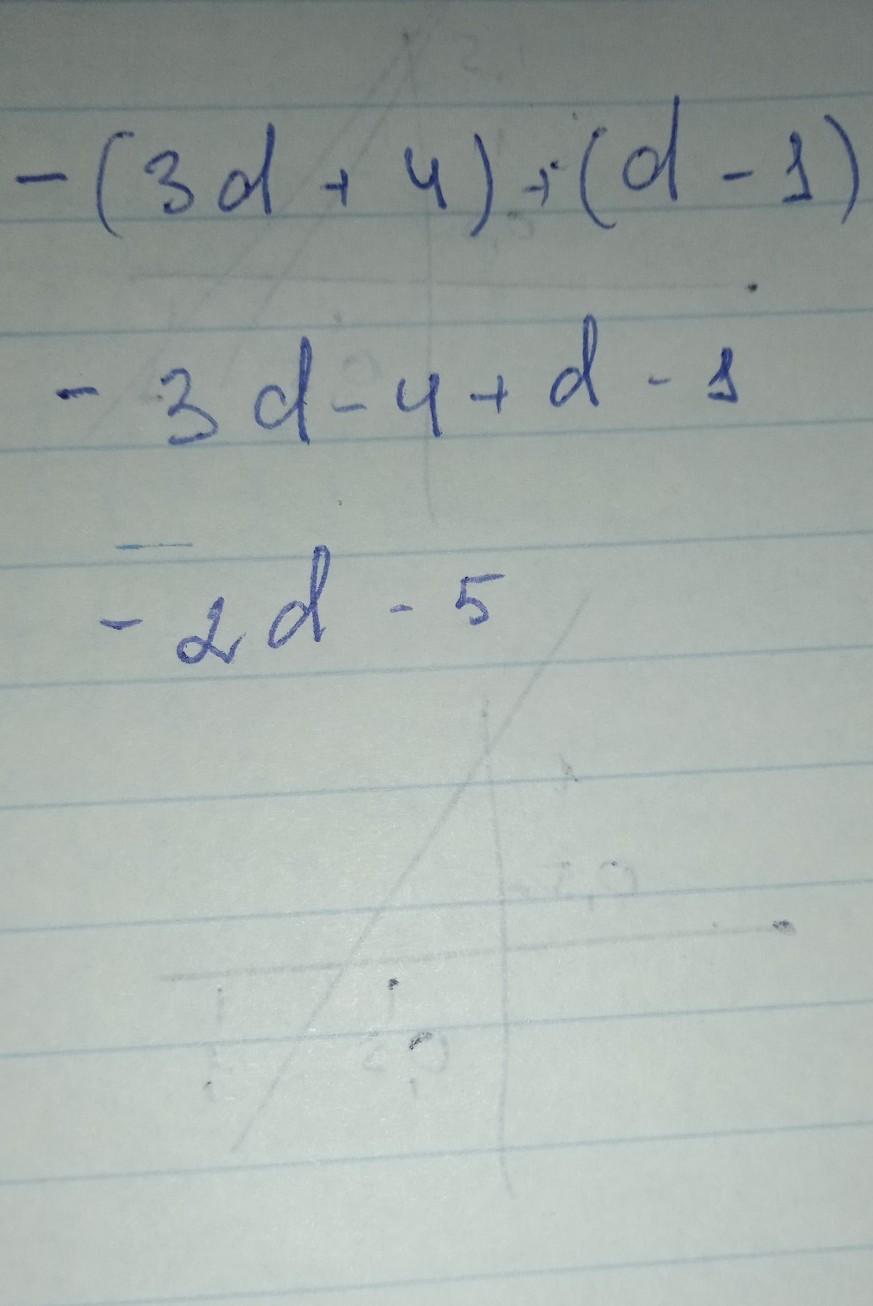 -(3d+4)+(d-1)
-3d-4+d-1
-2d-5